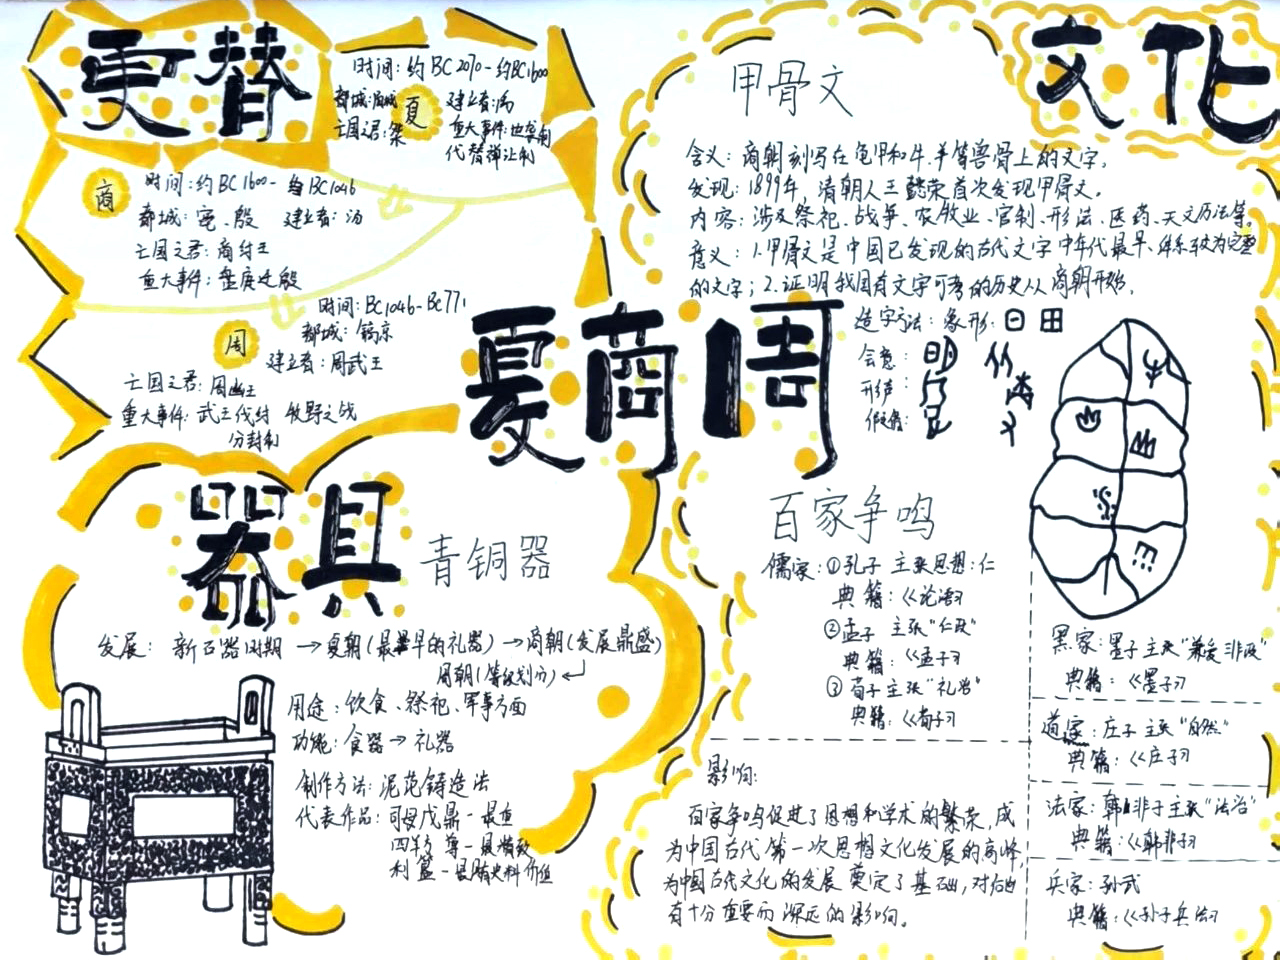 更替
时间：约BC2070-约BC1600
夏
建立者：禹
亡国之君：桀
重大事件：世袭制
代替禅让制
商
时间：约BC1600-约BC1046
都城：亳、殷 建立者：汤
亡国之君：商纣王
重大事件：盘庚迁殷
周
时间：BC1046-BC771
都城：镐京
建立者：周武王
亡国之君：周幽王
重大事件：武王伐纣 牧野之战
分封制
夏商周
器具
青铜器
发展：新石器时期→夏朝(最早的礼器)→商朝(发展鼎盛)
周朝(等级划分)
用途：饮食、祭祀、军事方面
功能：食器→礼器
制作方法：泥范铸造法
代表作品：司母戊鼎-最重
四羊方尊-最精致
利簋-最有史料价值
文化
甲骨文
含义：商朝刻写在龟甲和牛、羊等兽骨上的文字。
发现：1899年，清朝人王懿荣首次发现甲骨文。
内容：涉及祭祀、战争、农牧业、官制、刑法、医药、天文历法等。
意义：1.甲骨文是中国已发现的古代文字中年代最早、体系较为完整
的文字；2.证明我国有文字可考的历史从商朝开始。
造字方法：象形：
会意：
形声：
假借：
百家争鸣
儒家：①孔子 主张思想：仁
典籍：《论语》
②孟子 主张"仁政"
典籍：《孟子》
③荀子主张"礼治"
典籍：《荀子》
黑家：墨子主张"兼爱""非攻"
典籍：《墨子》
道家：庄子 主张"自然"
典籍：《庄子》
法家：韩非子主张"法治"
典籍：《韩非子》
兵家：孙武
典籍：《孙子兵法》
影响：
百家争鸣促进了思想和学术的繁荣，成
为中国古代第一次思想文化发展的高峰，
为中国古代文化的发展奠定了基础，对后世
有十分重要而深远的影响。